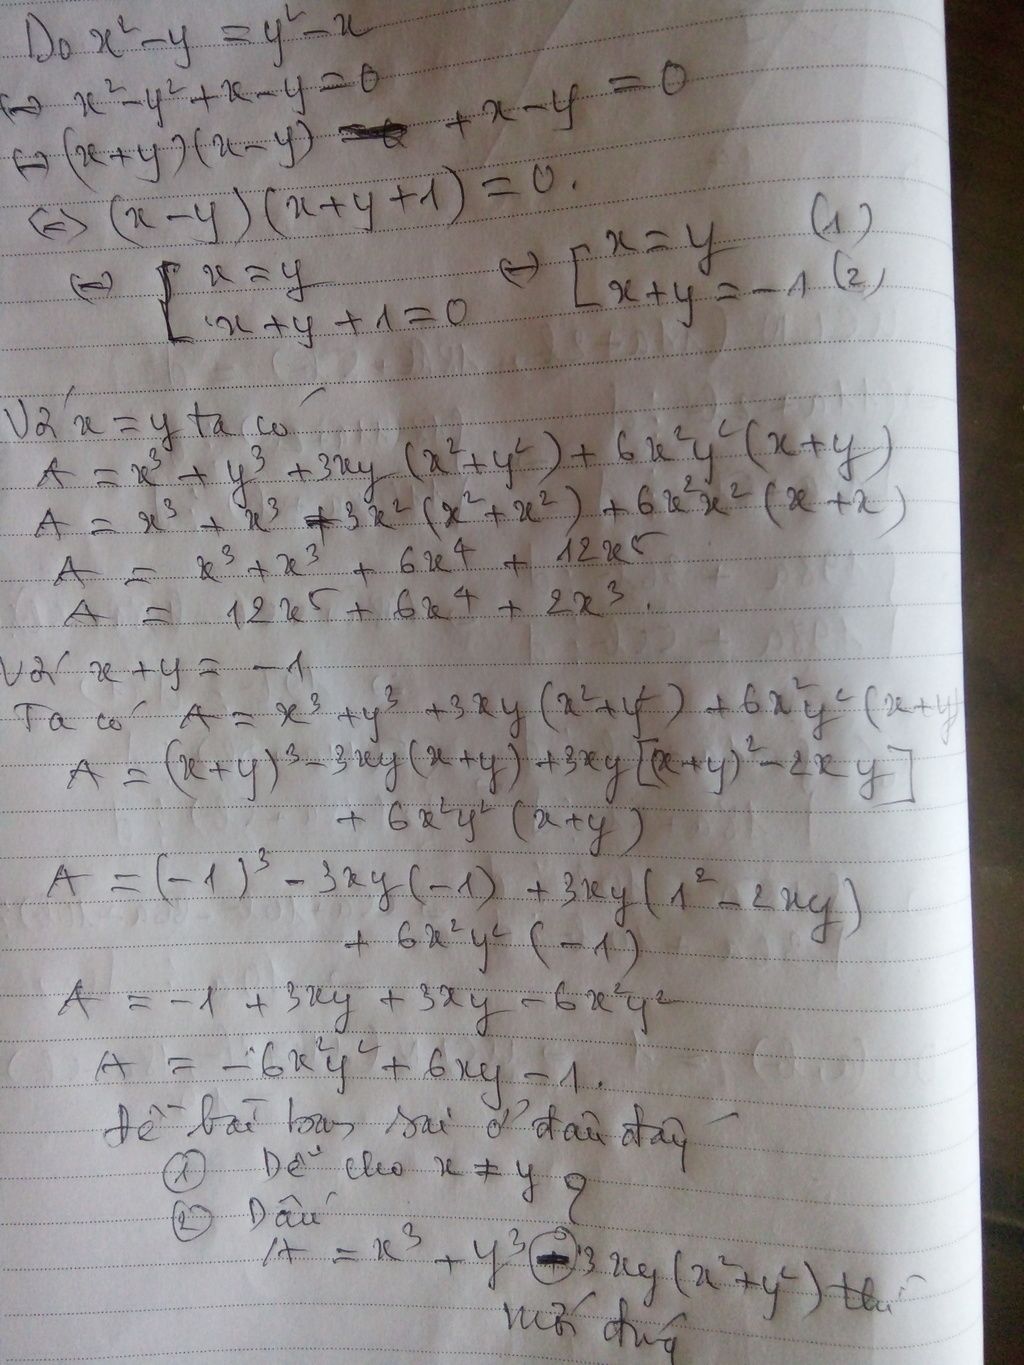 Do x² - y = y² - x
⇔ x² - y² + x - y = 0
⇔ (x+y)(x-y) + x - y = 0
⇔ (x-y)(x+y+1) = 0.
⇔ [ x = y ⇔ [ x = y (1)
x + y + 1 = 0 x + y = -1 (2)
Với x = y ta có
A = x³ + y³ + 3xy (x² + y²) + 6x²y² (x + y)
A = x³ + x³ + 3x² (x² + x²) + 6x²x² (x + x)
A = x³ + x³ + 6x⁴ + 12x⁵
A = 12x⁵ + 6x⁴ + 2x³.
Với x + y = -1
Ta có A = x³ + y³ + 3xy (x² + y²) + 6x²y² (x+y)
A = (x+y)³ - 3xy(x+y) + 3xy[(x+y)² - 2xy]
+ 6x²y² (x+y)
A = (-1)³ - 3xy(-1) + 3xy(1² - 2xy)
+ 6x²y² (-1)
A = -1 + 3xy + 3xy - 6x²y²
A = -6x²y² + 6xy - 1.
Đề bài bạn sai ở đâu đấy
① Để cho x ≠ y ?
② Dấu
A = x³ + y³ - 3xy(x² + y²) thì
mới đúng